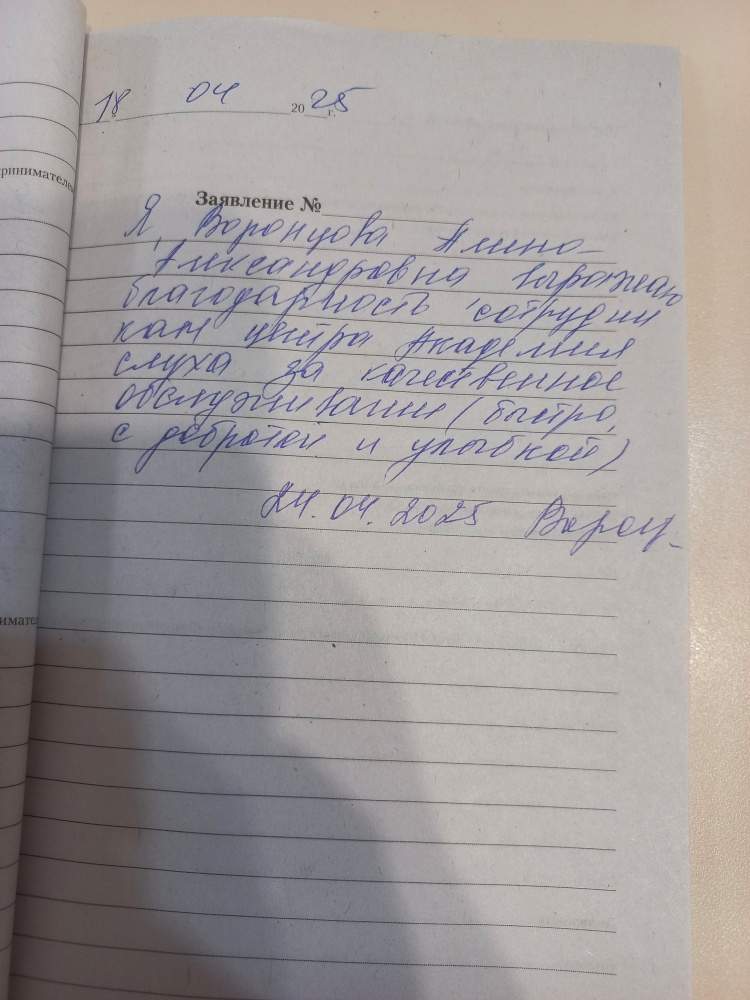 ринимателе
18 04 2025 г.
Заявление №
Я, Воронцова Алина
Александровна выражаю
благодарность сотрудни
кам центра Академия
слуха за качественное
обслуживании (быстро,
с добротой и улыбкой)
24.04.2025 Воронц
нимате